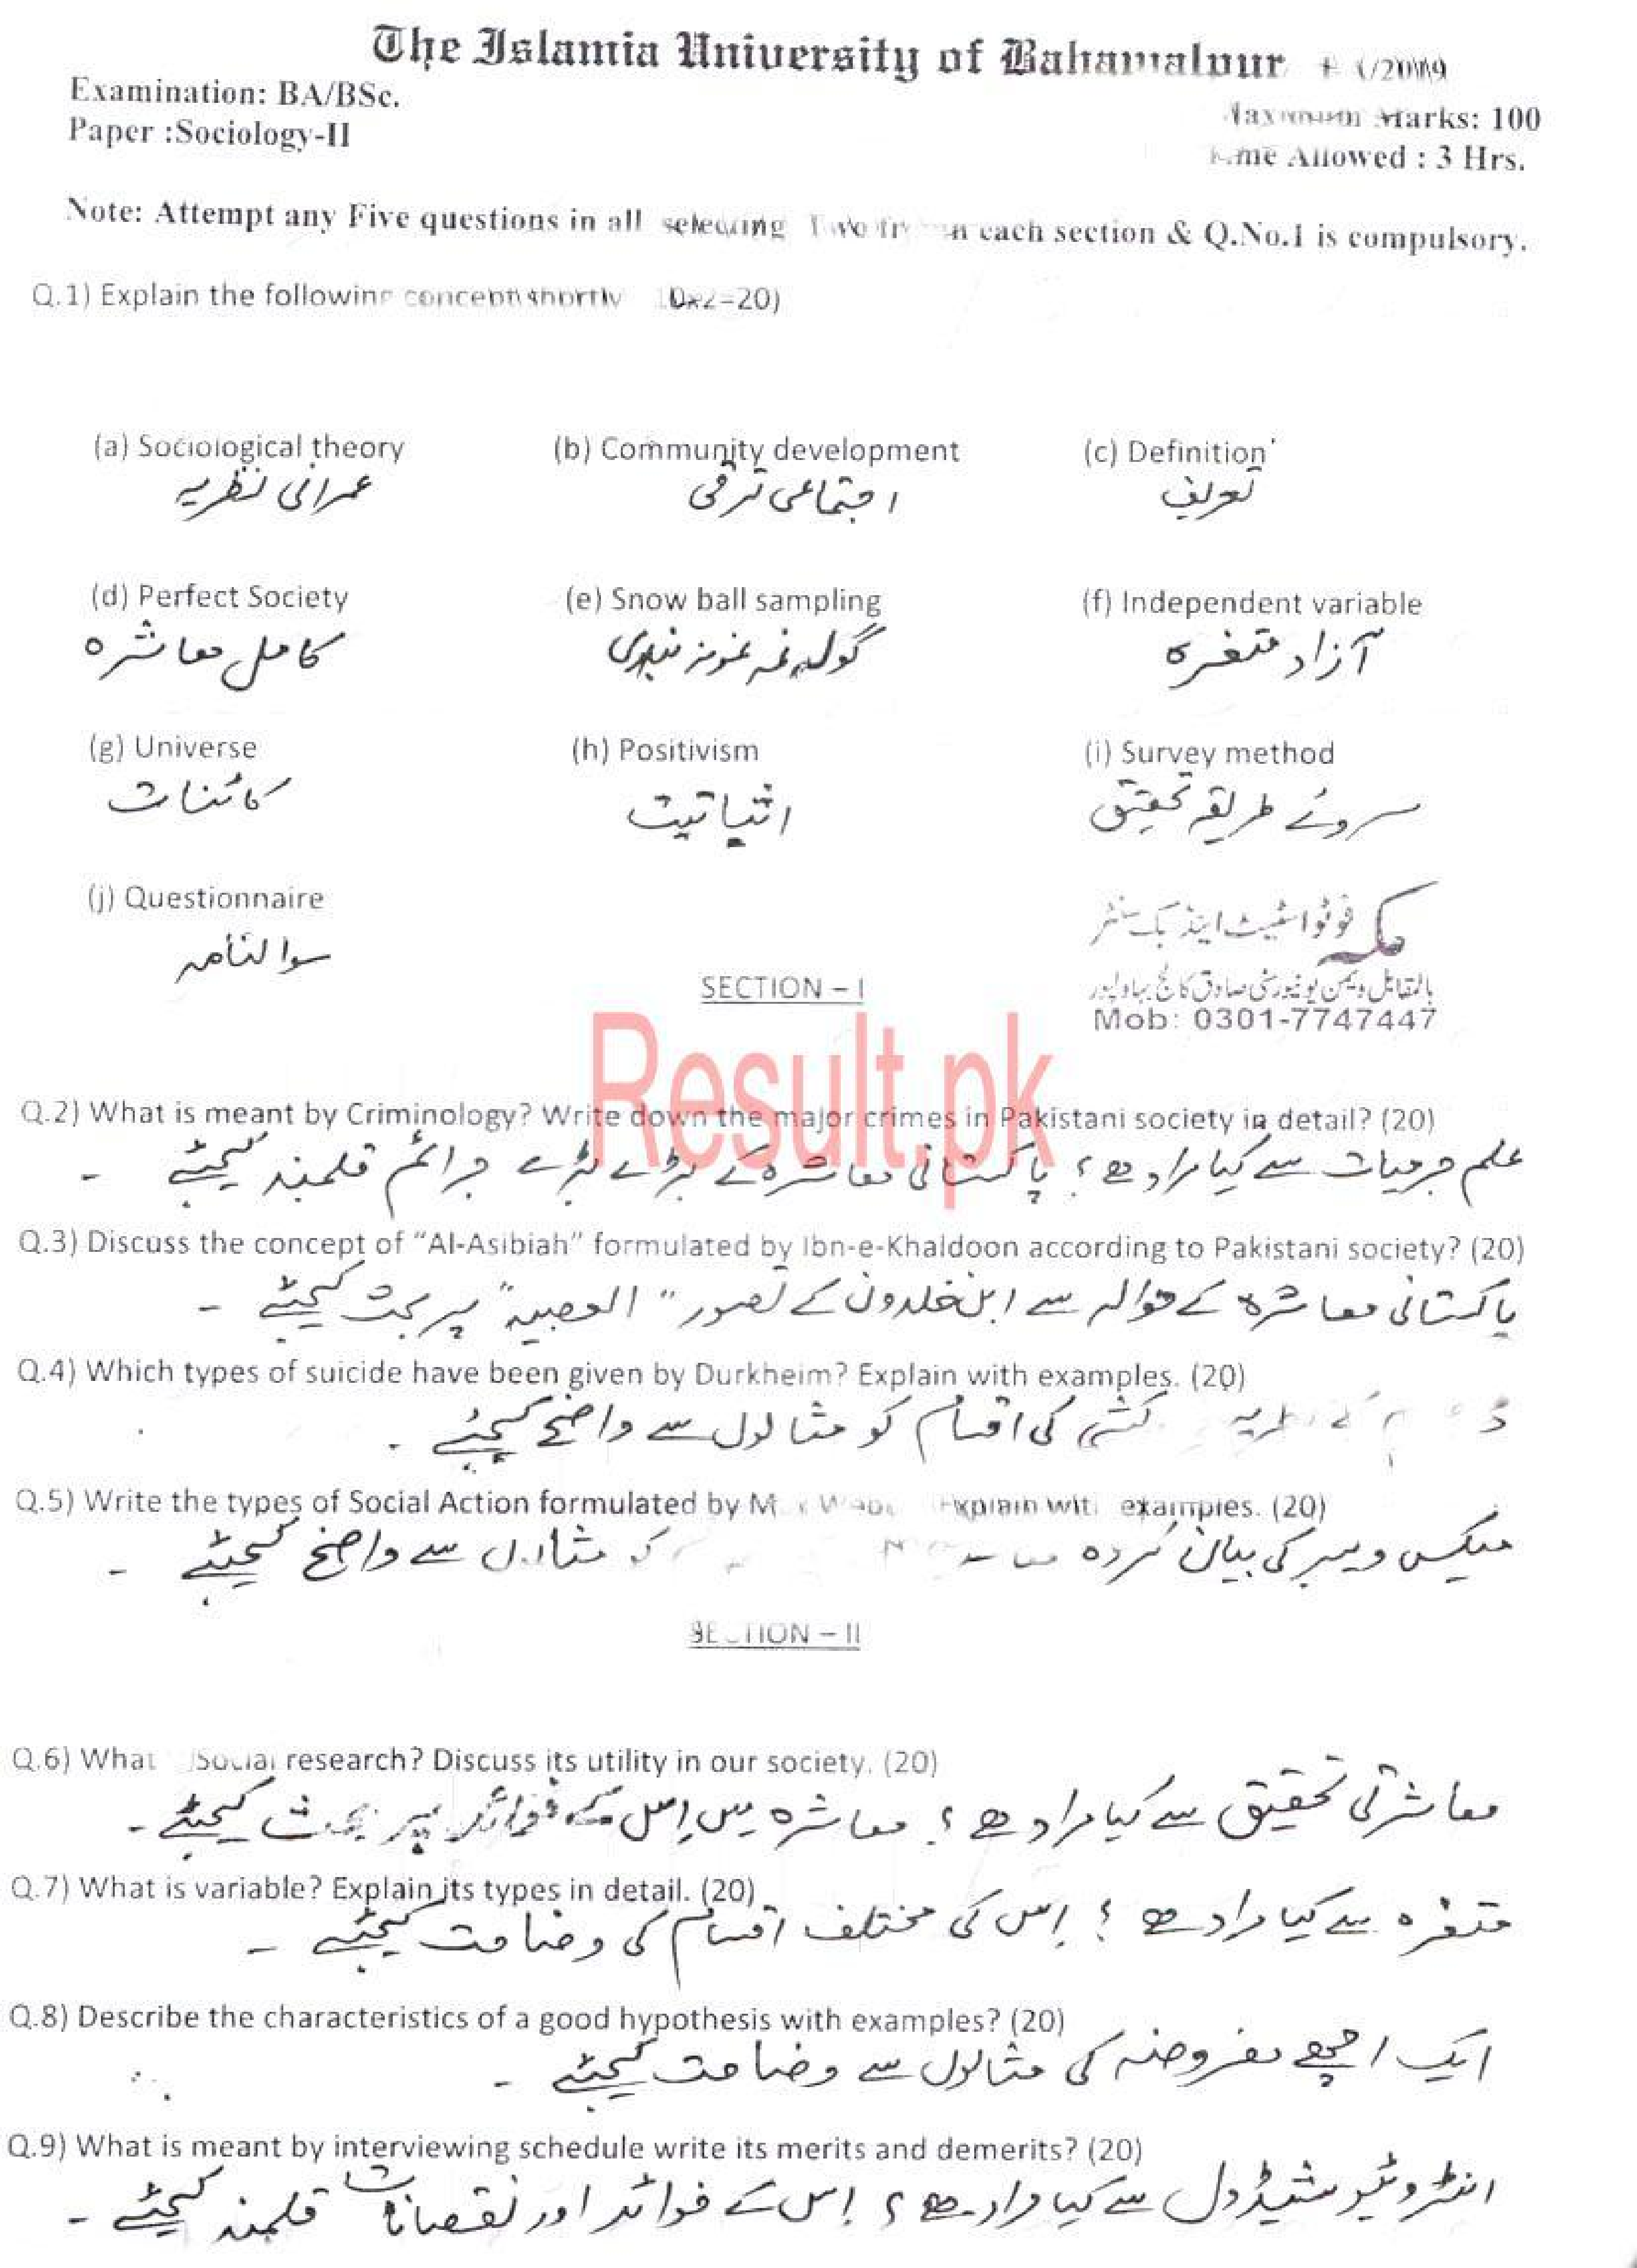 The Islamia University of Bahawalpur
Examination: BA/BSc.
Maximum Marks: 100
Paper :Sociology-II
Time Allowed : 3 Hrs.
Note: Attempt any Five questions in all selecting Two from each section & Q.No.1 is compulsory.
Q.1) Explain the following concept shortly 10x2=20)
(a) Sociological theory (b) Community development (c) Definition
عمرانی نظریہ اجتماعی ترقی تعریف
(d) Perfect Society (e) Snow ball sampling (f) Independent variable
کامل معاشرہ آزاد متغیرہ
(g) Universe (h) Positivism (i) Survey method
کائنات اثباتیت سروئے طریقہ تحقیق
(j) Questionnaire
سوالنامہ
مکہ فوٹو اسٹیٹ اینڈ بک سنٹر
بالمقابل ویمن یونیورسٹی صادق کالج بہاولپور
Mob: 0301-7747447
SECTION – I
Result.pk
Q.2) What is meant by Criminology? Write down the major crimes in Pakistani society in detail? (20)
علم جرمیات سے کیا مراد ہے؟ پاکستانی معاشرہ کے بڑے بڑے جرائم قلمبند کیجئے ۔
Q.3) Discuss the concept of “Al-Asibiah” formulated by Ibn-e-Khaldoon according to Pakistani society? (20)
پاکستانی معاشرہ کے حوالہ سے ابن خلدون کے تصور "العصبیہ" پر بحث کیجئے ۔
Q.4) Which types of suicide have been given by Durkheim? Explain with examples. (20)
کشی کی اقسام کو مثالوں سے واضح کیجئے ۔
Q.5) Write the types of Social Action formulated by Max Weber Explain with examples. (20)
میکس ویبر کی بیان کردہ کو مثالوں سے واضح کیجئے ۔
SECTION – II
Q.6) What Social research? Discuss its utility in our society. (20)
معاشرتی تحقیق سے کیا مراد ہے؟ معاشرہ میں اِس کے فوائد پر بحث کیجئے ۔
Q.7) What is variable? Explain its types in detail. (20)
متغیرہ سے کیا مراد ہے؟ اِس کی مختلف اقسام کی وضاحت کیجئے ۔
Q.8) Describe the characteristics of a good hypothesis with examples? (20)
ایک اچھے مفروضہ کی مثالوں سے وضاحت کیجئے ۔
Q.9) What is meant by interviewing schedule write its merits and demerits? (20)
انٹرویو شیڈول سے کیا مراد ہے؟ اِس کے فوائد اور نقصانات قلمبند کیجئے ۔